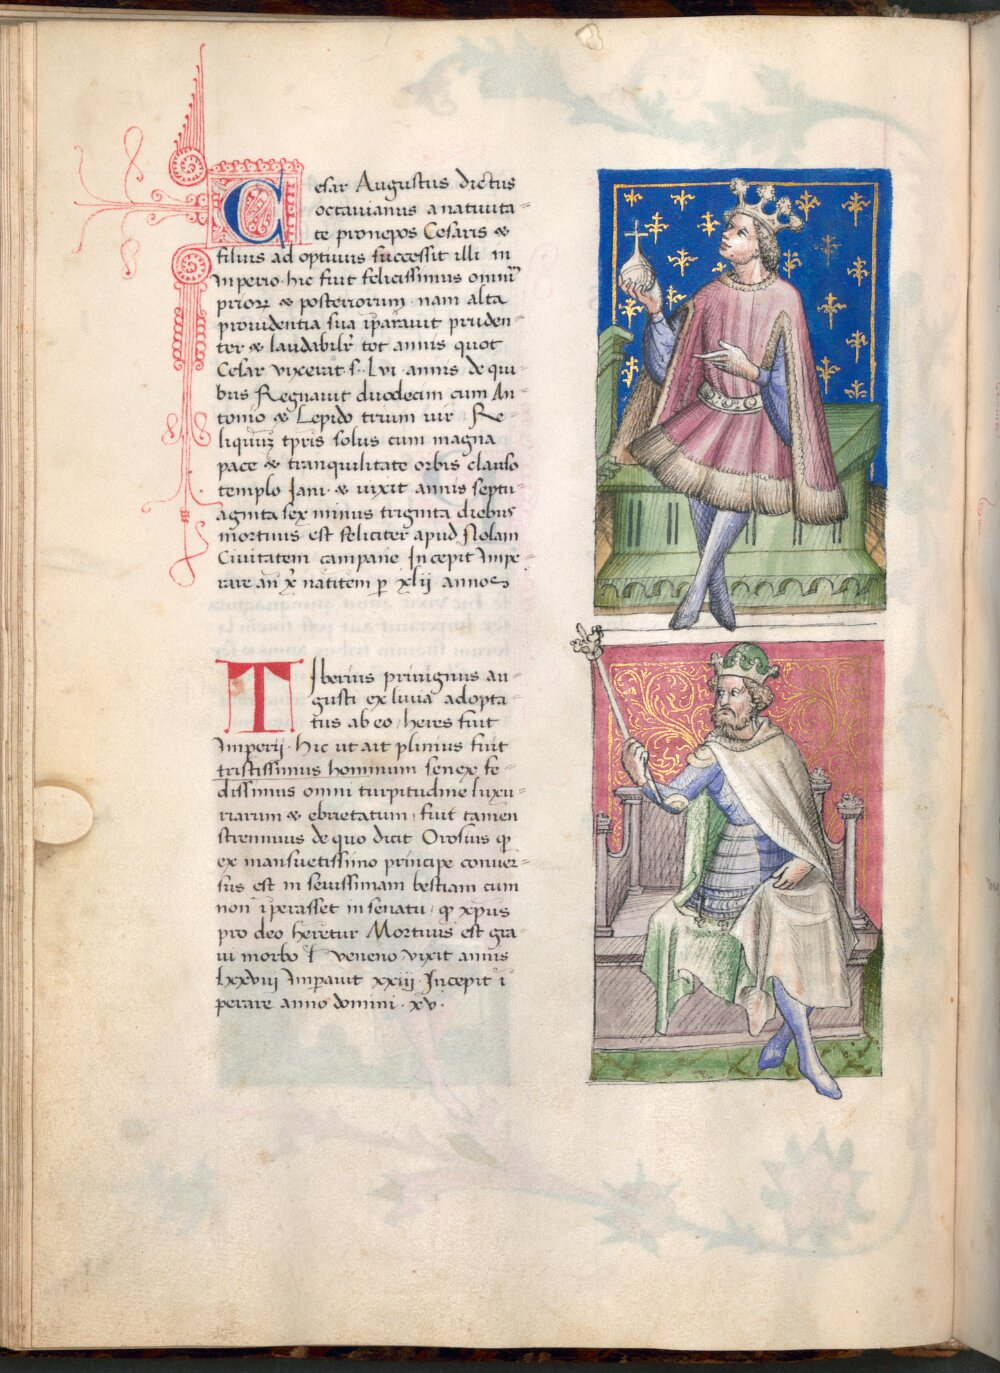 Cesar Augustus dictus
octauianus a natiuita
te pronepos Cesaris &
filius ad optiuus successit illi in
Imperio. hic fuit felicissimus omniũ
priorꝝ & posteriorum. nam alta
prouidentia sua ip̃arauit pruden
ter & laudabilr̃ tot annis quot
Cesar vixerat s. Lvi. annis de qui
bus Regnauit duodecim cum An
tonio & Lepido trium vir. Re
liquuʒ tp̃ris solus cum magna
pace & tranquilitate orbis clauso
templo Jani. & uixit annis septu
aginta sex minus triginta diebus
mortuus est feliciter apud Nolam
Ciuitatem campanie Incepit Impe
rare añ xp̃ natitem p xlij annos
Tiberius priuignus au
gusti ex liuia adopta
tus ab eo / heres fuit
Imperij. hic ut ait plinius fuit
tristissimus hominum senex fe
dissimus omni turpitudine luxu
riarum & ebrietatum / fuit tamen
strennuus de quo dicit Orosius ꝙ
ex mansuetissimo principe conuer
sus est in seuissimam bestiam cum
non ip̃erasset in senatu / ꝙ xp̃us
pro deo heretur Mortuus est gra
ui morbo ł veneno vixit annis
lxxviij Imp̃auit xxiij. Incepit ĩ
perare anno domini. xv.